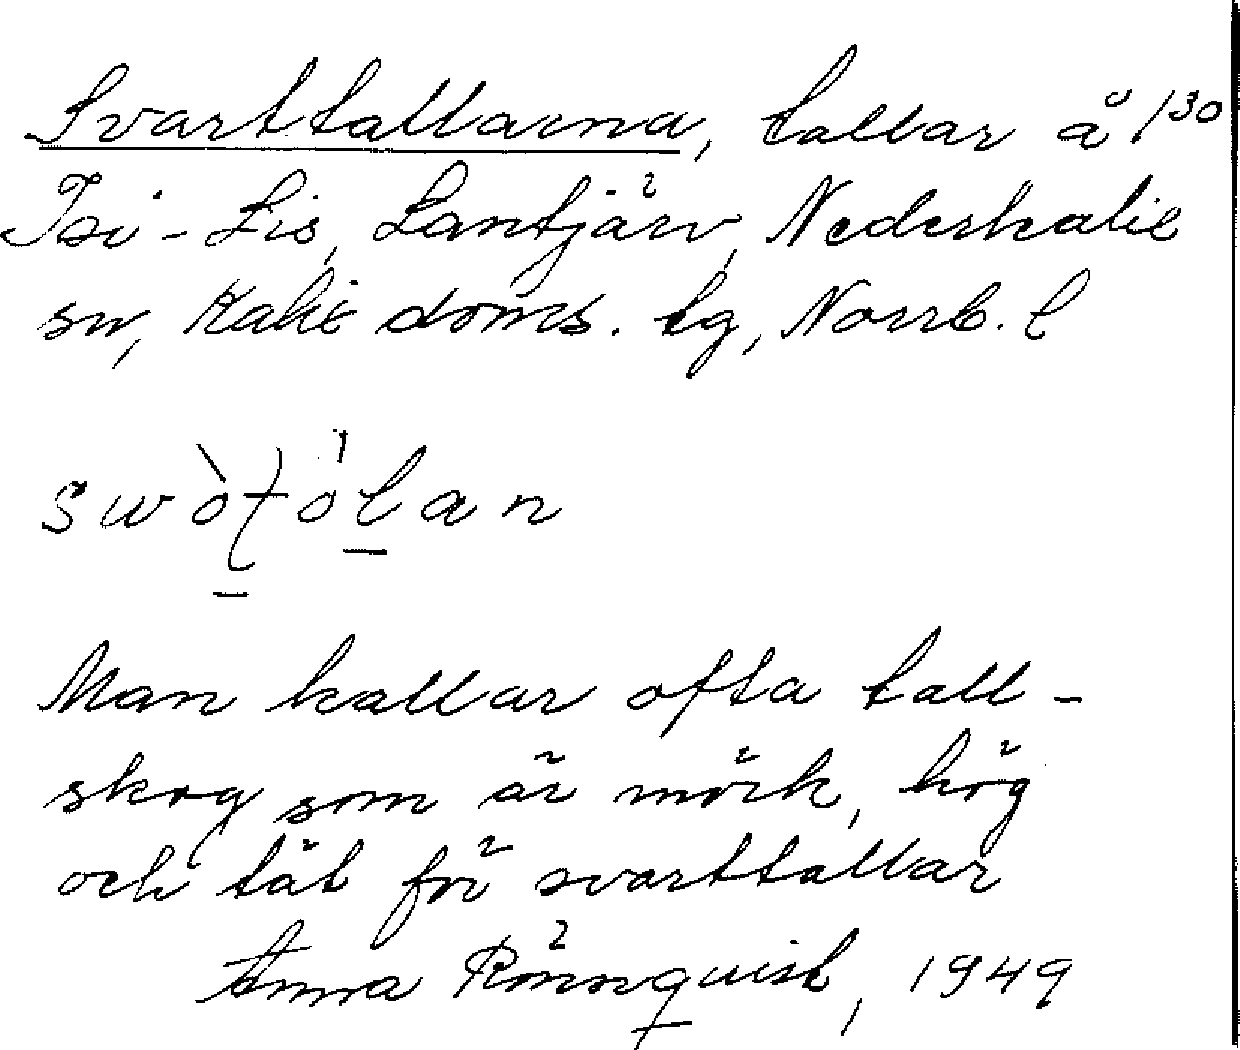 Svarttallarna, tallar å 1³⁰
Isi-Lis, Lantjärv, Nederkalix
sn, Kalix doms. lg, Norrb. l
Man kallar ofta tall-
skog som är mörk, hög
och tät för svarttallar
Anna Rönnquist, 1949